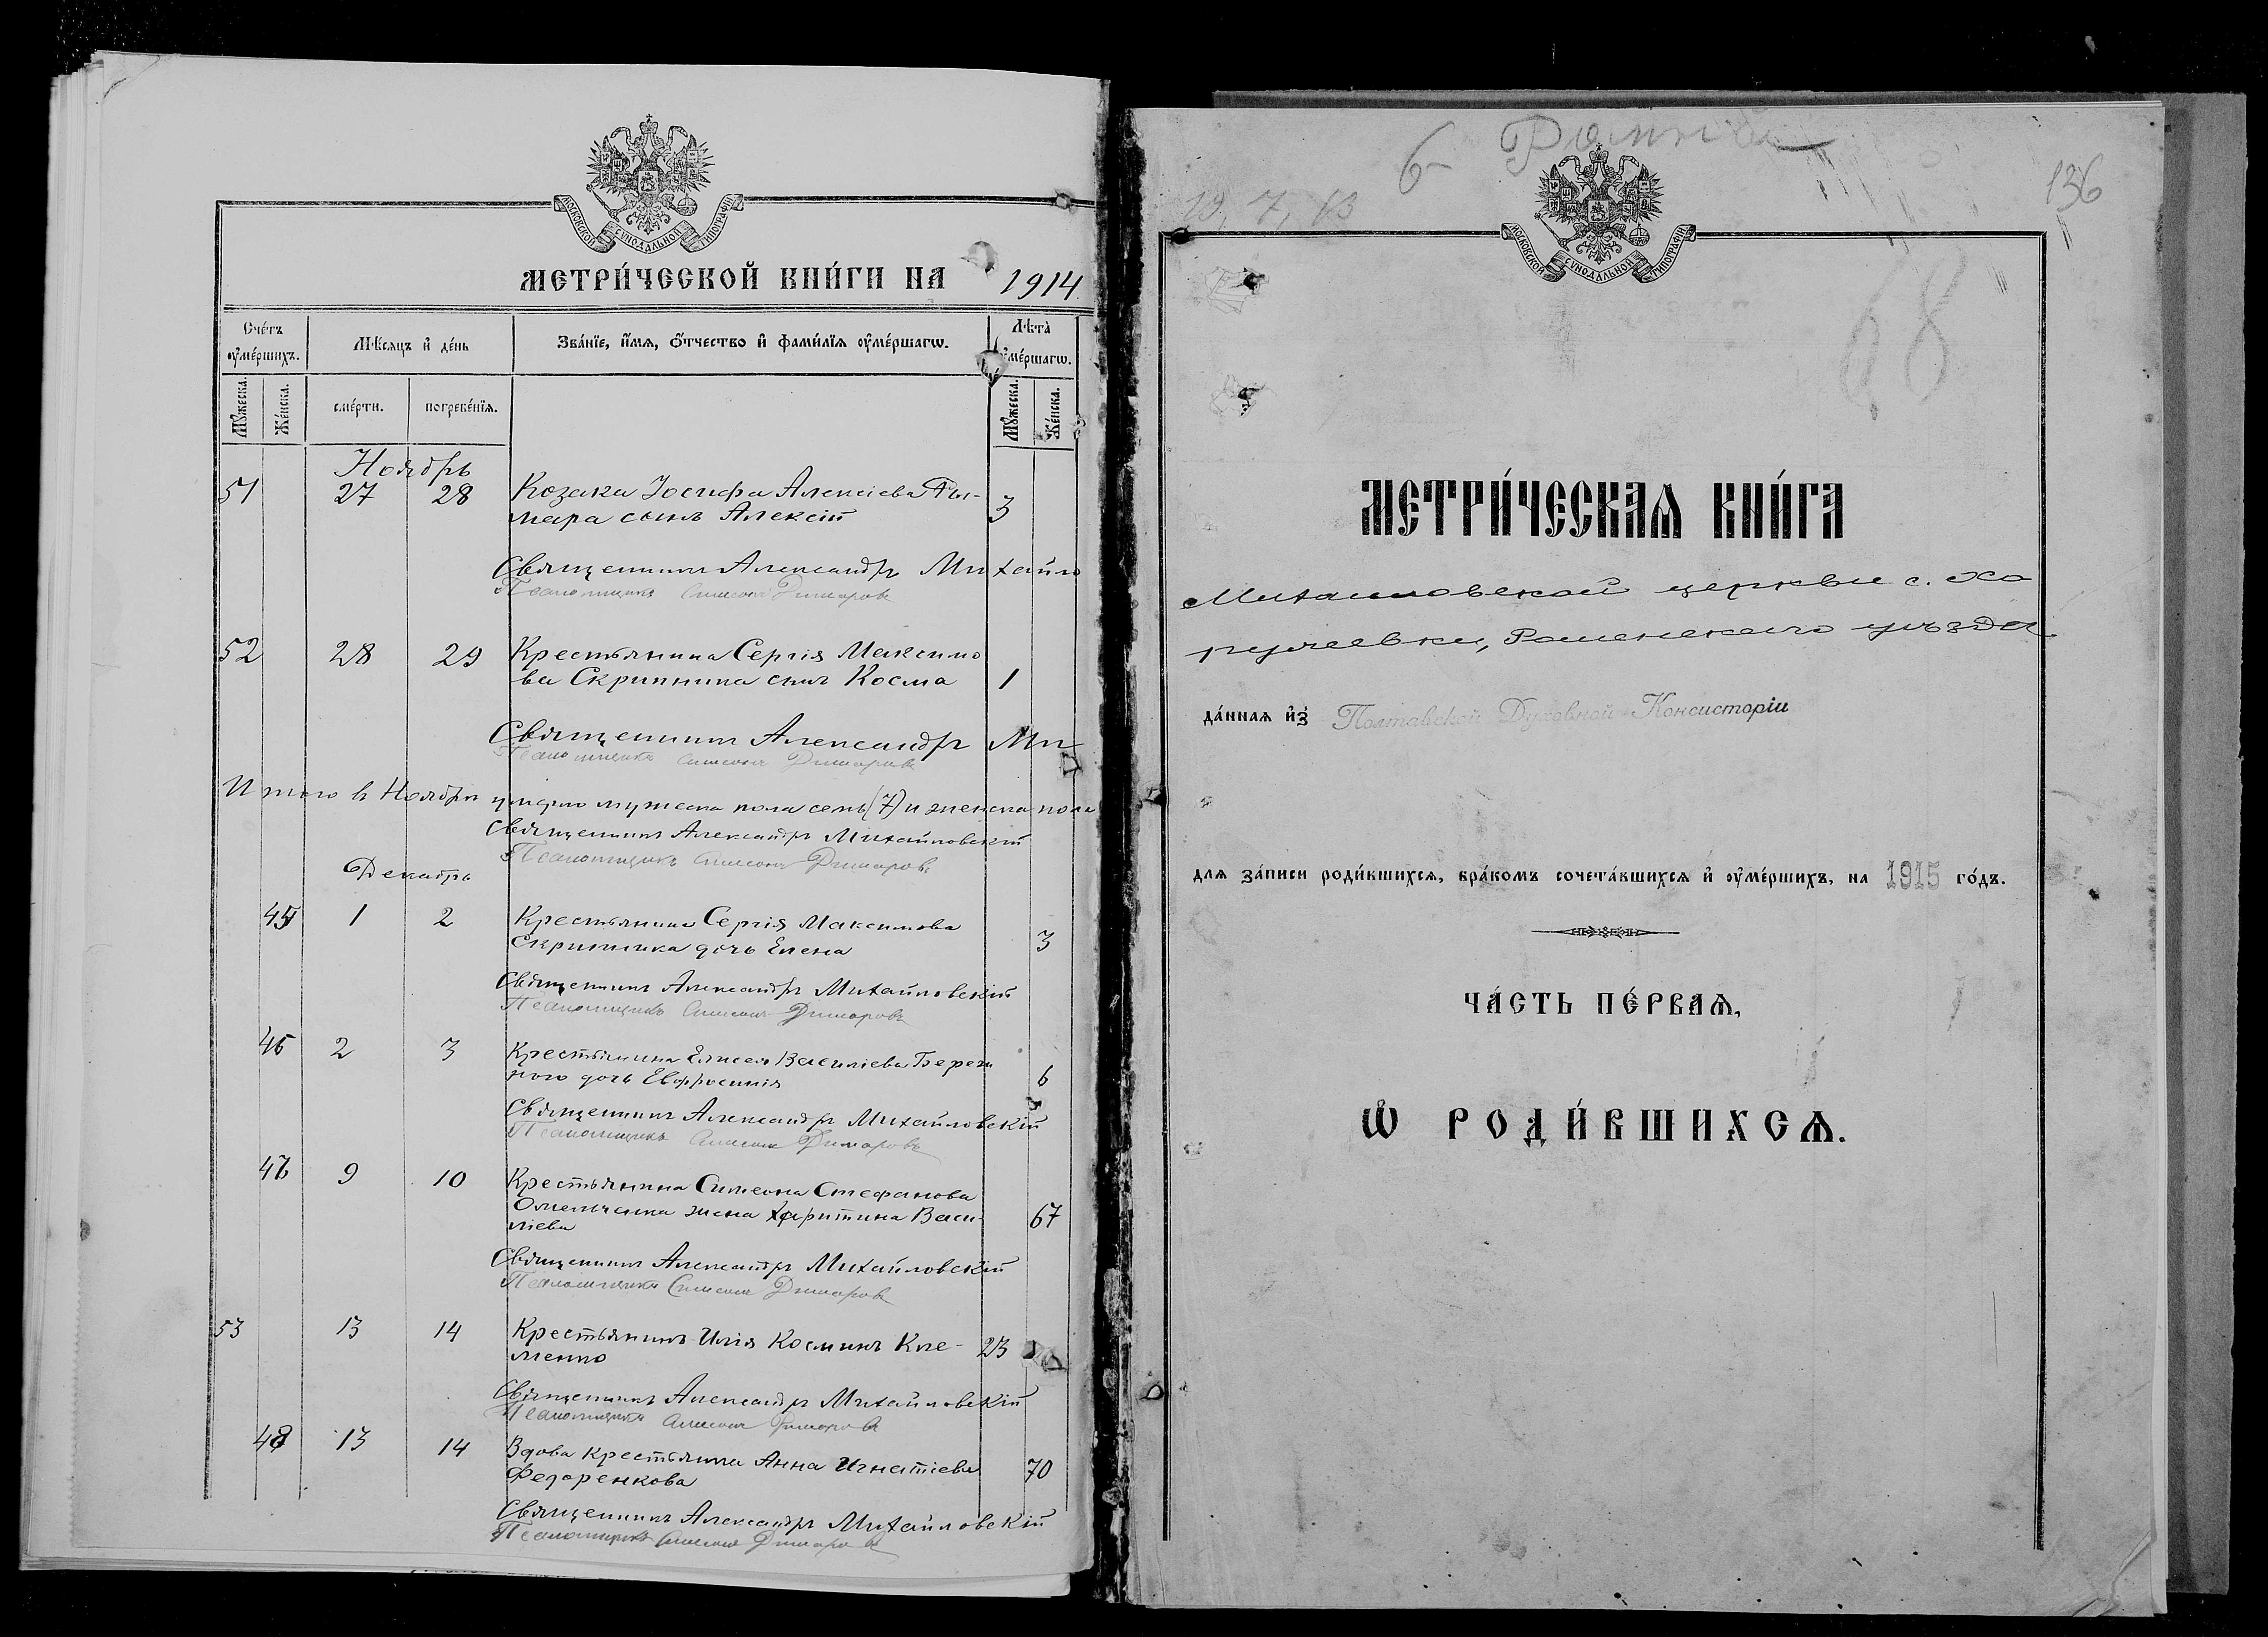 МОСКОВСКОЙ СѴНОДАЛЬНОЙ ТИПОГРАФІИ
МЕТРИ́ЧЕСКОЙ КНИ́ГИ НА 1914
Сче́тъ ᲂу҆ме́ршихъ.
Мѣ́сяцъ и҆ де́нь
Зва́нїе, и҆́мѧ, ѻ҆́тчество и҆ фами́лїѧ ᲂу҆ме́ршагѡ.
Лѣ́та ᲂу҆ме́ршагѡ.
Мꙋ́жеска. Же́нска.
сме́рти. погребе́нїѧ.
Мꙋ́жеска. Же́нска.
Ноябрь
51 27 28 Козака Іосифа Алексіева Ты-
мара сынъ Алексій 3
Священникъ Александръ Михайло
Псаломщикъ Симеонъ Димаровъ
52 28 29 Крестьянина Сергія Максимо
ва Скрипника сынъ Косма 1
Священникъ Александръ Ми
Псаломщикъ Симеонъ Димаровъ
Итого въ Ноябрѣ умерло мужеска пола семь (7) и женска пола
Священникъ Александръ Михайловскій
Псаломщикъ Симеонъ Димаровъ
Декабрь
45 1 2 Крестьянина Сергія Максимова
Скрипника дочь Елена 3
Священникъ Александръ Михайловскій
Псаломщикъ Симеонъ Димаровъ
46 2 3 Крестьянина Елисея Василіева Береж
ного дочь Евфросинія 6
Священникъ Александръ Михайловскій
Псаломщикъ Симеонъ Димаровъ
47 9 10 Крестьянина Симеона Стефанова
Омельченка жена Харитина Васи-
ліева 67
Священникъ Александръ Михайловскій
Псаломщикъ Симеонъ Димаровъ
53 13 14 Крестьянинъ Илія Косминъ Кле-
менко 23
Священникъ Александръ Михайловскій
Псаломщикъ Симеонъ Димаровъ
48 13 14 Вдова крестьянка Анна Игнатіева
Федоренкова 70
Священникъ Александръ Михайловскій
Псаломщикъ Симеонъ Димаровъ
6
136
19, 7, 13
МОСКОВСКОЙ СѴНОДАЛЬНОЙ ТИПОГРАФІИ
68
МЕТРИ́ЧЕСКАѦ КНИ́ГА
Михайловской церкви с. Хо
ружевки, Роменскаго уѣзда.
да́ннаѧ и҆з̾ Полтавской Духовной Консисторіи
длѧ за́писи роди́вшихсѧ, бра́комъ сочета́вшихсѧ и҆ ᲂу҆ме́ршихъ, на 1915 го́дъ.
ЧА́СТЬ ПЕ́РВАѦ,
Ѡ҆ РОДИ́ВШИХСѦ.